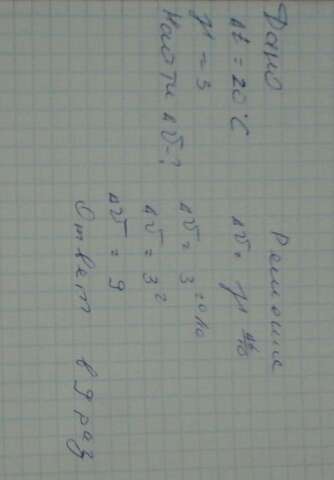 Дано
Δt = 20°C
γ = 3
Найти ΔV-?
Решение
ΔV = γ Δt/10
ΔV = 3 20/10
ΔV = 3²
ΔV = 9
Ответ в 9 раз